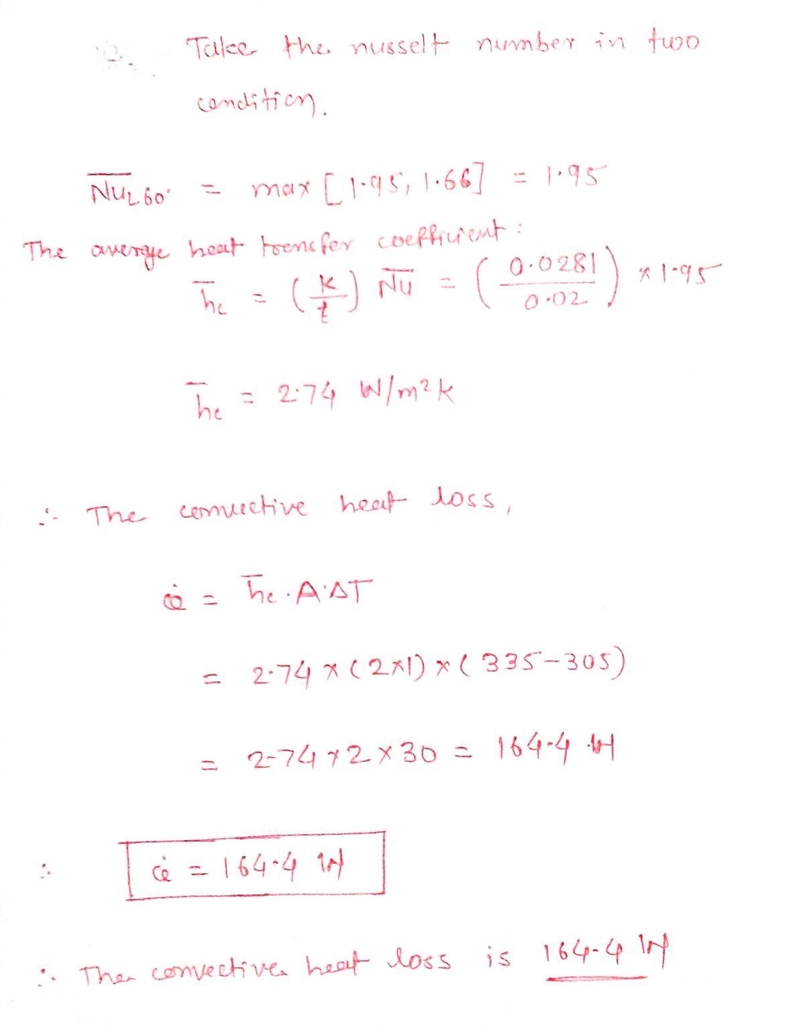 Take the nusselt number in two
condition.
N̅u̅L60° = max [1.95, 1.66] = 1.95
The average heat trencfer coefficient :
h̅c = (k/t) N̅u̅ = (0.0281/0.02) × 1.95
h̅c = 2.74 W/m²k
∴ The convective heat loss,
Q̇ = h̅c . A.ΔT
= 2.74 × (2×1) × (335-305)
= 2.74 × 2 × 30 = 164.4 W
∴ Q̇ = 164.4 W
∴ The convective heat loss is 164.4 W